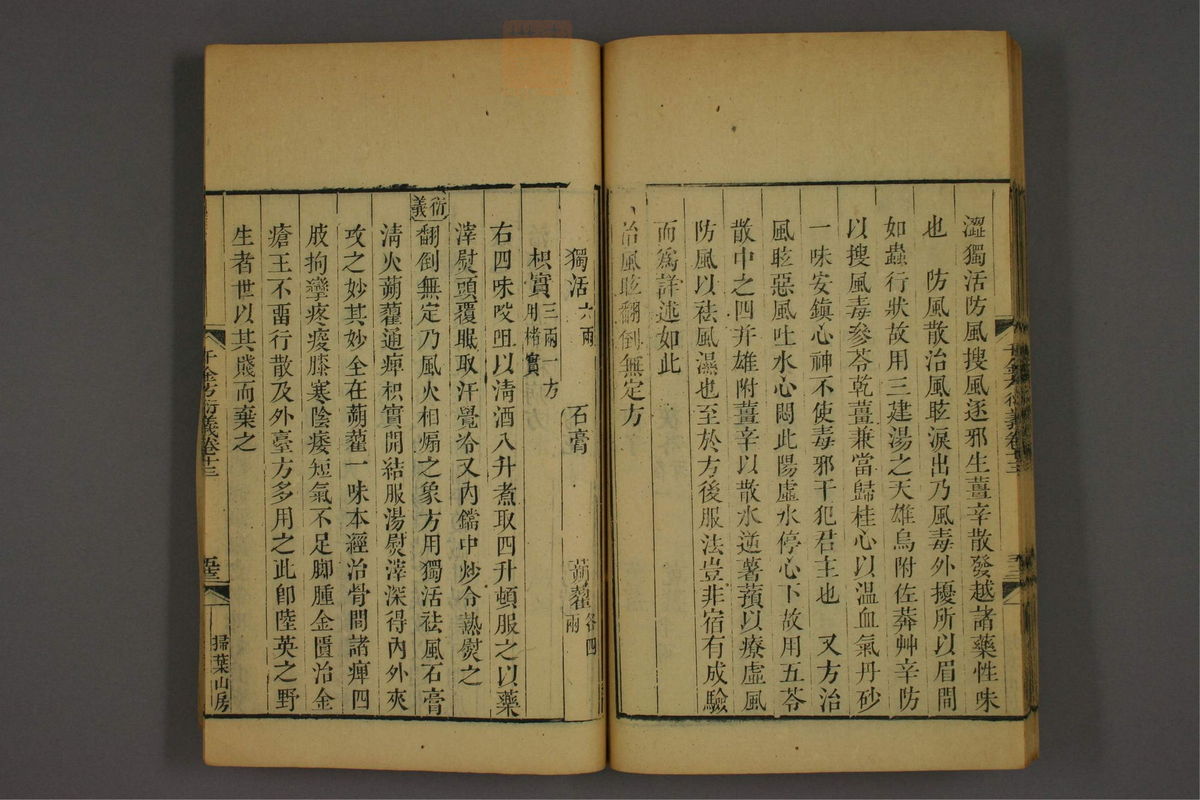 澀獨活防風搜風逐邪生薑辛散發越諸藥性味
也　防風散治風眩淚出乃風毒外擾所以眉間
如蟲行狀故用三建湯之天雄烏附佐莽艸辛防
以搜風毒參苓乾薑兼當歸桂心以溫血氣丹砂
一味安鎮心神不使毒邪干犯君主也　又方治
風眩惡風吐水心悶此陽虛水停心下故用五苓
散中之四并雄附薑辛以散水逆薯蕷以療虛風
防風以祛風濕也至於方後服法豈非宿有成驗
而為詳述如此
治風眩翻倒無定方
獨活六兩　石膏　蒴藋各四兩
枳實三兩一方用楮實
右四味㕮咀以清酒八升煮取四升頓服之以藥
滓熨頭覆眠取汗覺冷又內鐺中炒令熱熨之
衍義
翻倒無定乃風火相煽之象方用獨活祛風石膏
清火蒴藋通痺枳實開結服湯熨滓深得內外夾
攻之妙其妙全在蒴藋一味本經治骨間諸痺四
肢拘攣疼痠膝寒陰痿短氣不足腳腫金匱治金
瘡王不畱行散及外臺方多用之此卽陸英之野
生者世以其賤而棄之
千金方衍義卷十三
掃葉山房